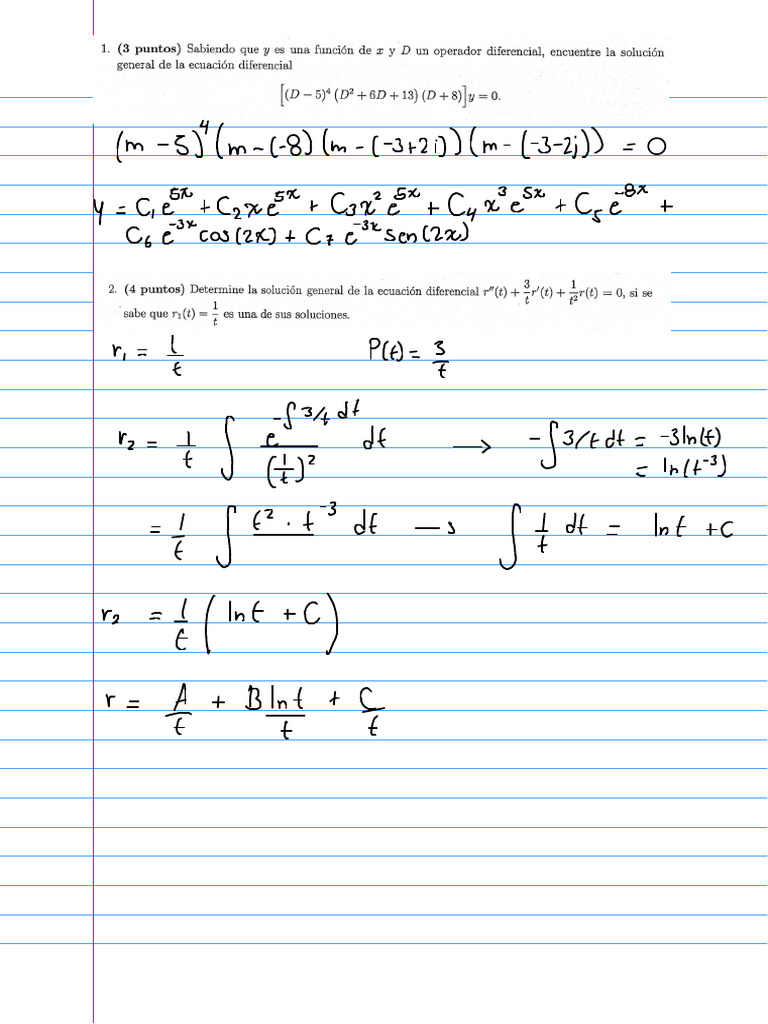 1. (3 puntos) Sabiendo que y es una función de x y D un operador diferencial, encuentre la solución
general de la ecuación diferencial
[(D − 5)⁴ (D² + 6D + 13) (D + 8)] y = 0.
(m − 5)⁴ (m − (-8) (m − (-3+2i)) (m − (-3-2j)) = 0
y = C₁e^{5x} + C₂xe^{5x} + C₃x²e^{5x} + C₄x³e^{5x} + C₅e^{-8x} +
C₆e^{-3x}cos(2x) + C₇e^{-3x}sen(2x)
2. (4 puntos) Determine la solución general de la ecuación diferencial r''(t) + 3/t r'(t) + 1/t² r(t) = 0, si se
sabe que r₁(t) = 1/t es una de sus soluciones.
r₁ = 1/t P(t) = 3/t
r₂ = 1/t ∫ e^{-∫3/t dt}/(1/t)² dt ⟶ -∫3/t dt = -3ln(t)
= ln(t⁻³)
= 1/t ∫ t² · t⁻³ dt → ∫ 1/t dt = ln t + C
r₂ = 1/t (ln t + C)
r = A/t + B ln t/t + C/t